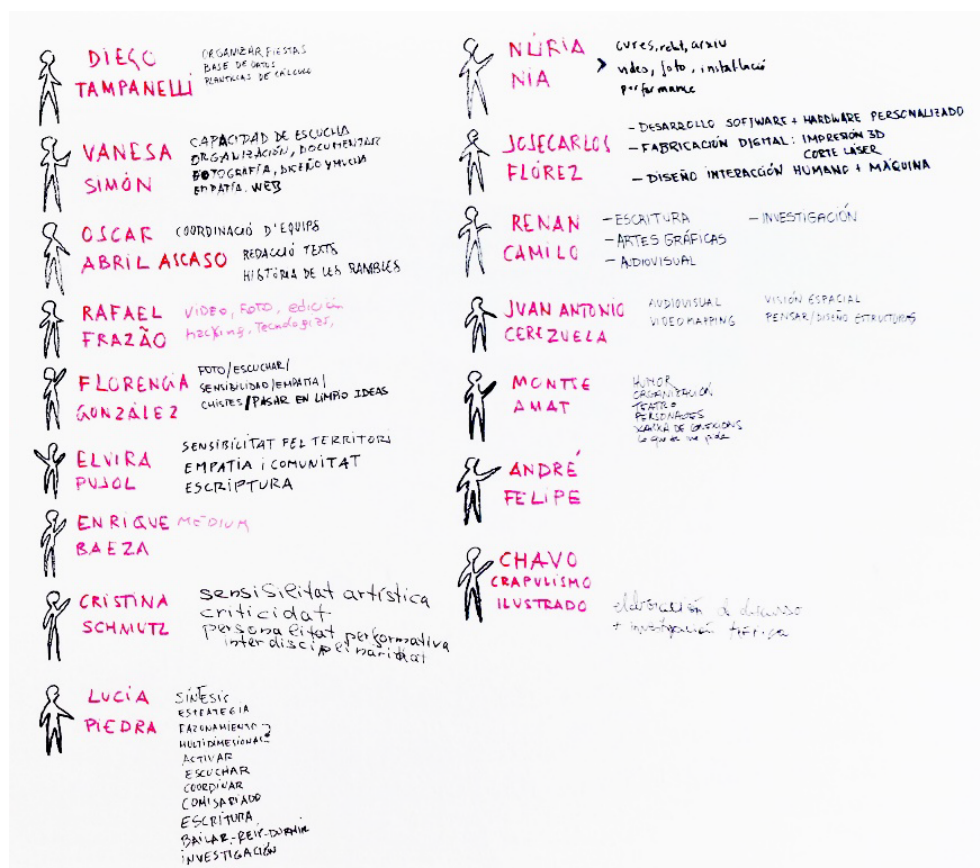 DIEGO
TAMPANELLI
ORGANIZAR FIESTAS
BASE DE DATOS
PLANTILLAS DE CÁLCULO
VANESA
SIMÓN
CAPACIDAD DE ESCUCHA
ORGANIZACIÓN, DOCUMENTAR
FOTOGRAFÍA, DISEÑO Y MUCHA
EMPATÍA. WEB
OSCAR
ABRIL ASCASO
COORDINACIÓ D'EQUIPS
REDACCIÓ TEXTS
HISTÒRIA DE LES RAMBLES
RAFAEL
FRAZÃO
VIDEO, FOTO, edición
hacking, Tecnologías,
FLORENCIA
GONZÁLEZ
FOTO/ESCUCHAR/
SENSIBILIDAD/EMPATIA/
CHISTES/PASAR EN LIMPIO IDEAS
ELVIRA
PUJOL
SENSIBILITAT PEL TERRITORI
EMPATIA I COMUNITAT
ESCRIPTURA
ENRIQUE
BAEZA
MÉDIUM
CRISTINA
SCHMUTZ
sensibilitat artística
criticidat
personalitat performativa
interdisciplinaridtat
LUCÍA
PIEDRA
SÍNTESIS
ESTRATEGIA
RAZONAMIENTO
MULTIDIMESIONAL
ACTIVAR
ESCUCHAR
COORDINAR
COMISARIADO
ESCRITURA
BAILAR-REIR-DORMIR
INVESTIGACIÓN
NÚRIA
NIA
cures, relat, arxiu
> video, foto, instal·lació
performance
JOSECARLOS
FLÓREZ
- DESARROLLO SOFTWARE + HARDWARE PERSONALIZADO
- FABRICACIÓN DIGITAL: IMPRESIÓN 3D
CORTE LÁSER
- DISEÑO INTERACCIÓN HUMANO + MÁQUINA
RENAN
CAMILO
- ESCRITURA
- ARTES GRÁFICAS
- AUDIOVISUAL
- INVESTIGACIÓN
JUAN ANTONIO
CEREZUELA
AUDIOVISUAL
VIDEOMAPPING
VISIÓN ESPACIAL
PENSAR/DISEÑO ESTRUCTURAS
MONTSE
AMAT
HUMOR
ORGANIZACIÓN
TEATRO
PERSONAJES
XARXA DE
lo que se me pida
ANDRÉ
FELIPE
CHAVO
CRAPULISMO
ILUSTRADO
elaboración de discurso
+ investigación